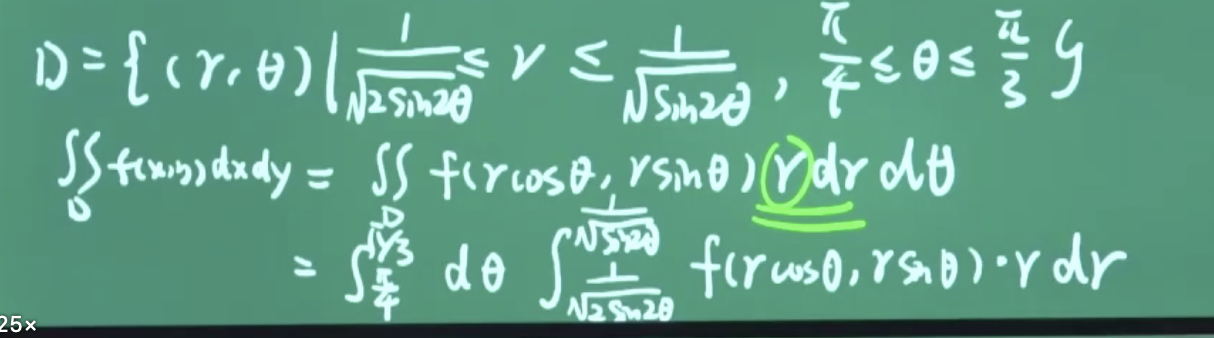 D = {(r, θ) | 1/√(2sin2θ) ≤ r ≤ 1/√(sin2θ), π/4 ≤ θ ≤ π/3}
∬_D f(x,y) dxdy = ∬_D f(rcosθ, rsinθ) r dr dθ
= ∫_{π/4}^{π/3} dθ ∫_{1/√(2sin2θ)}^{1/√(sin2θ)} f(rcosθ, rsinθ)·r dr
25×